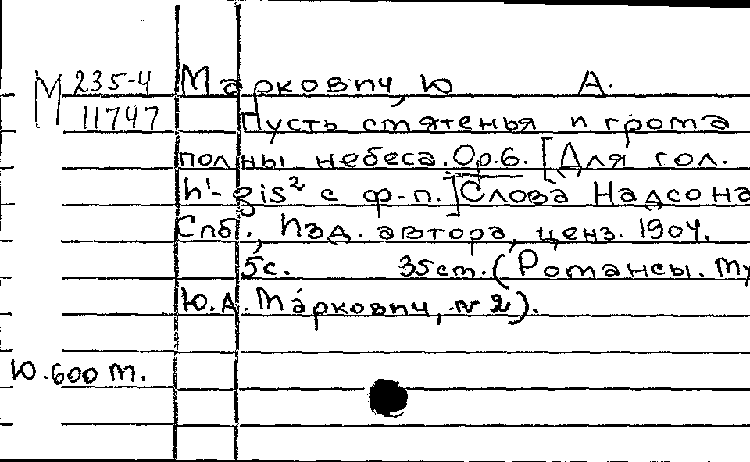 М 235-4
11747
Маркович, Ю А.
Пусть смятенья и грома
полны небеса. Op.6. [Для гол.
h¹-gis² с ф-п.] Слова Надсона
Спб. Изд. автора, ценз. 1904.
5с. 35cm. (Романсы. Му
Ю.А. Маркович, № 2).
Ю.600 м.